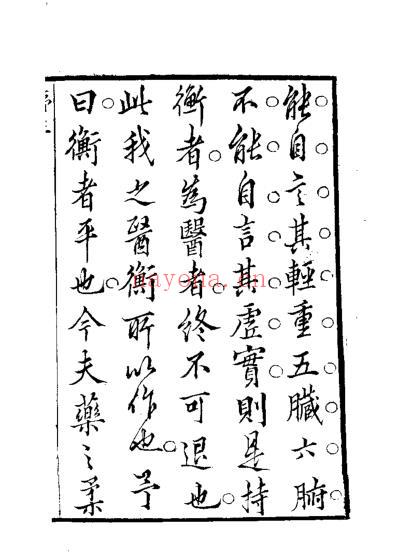 能自言其輕重五臟六腑
不能自言其虛實則是持
衡者為醫者終不可退也
此我之醫衡所以作也予
曰衡者平也今夫藥之柔
nayona.cn